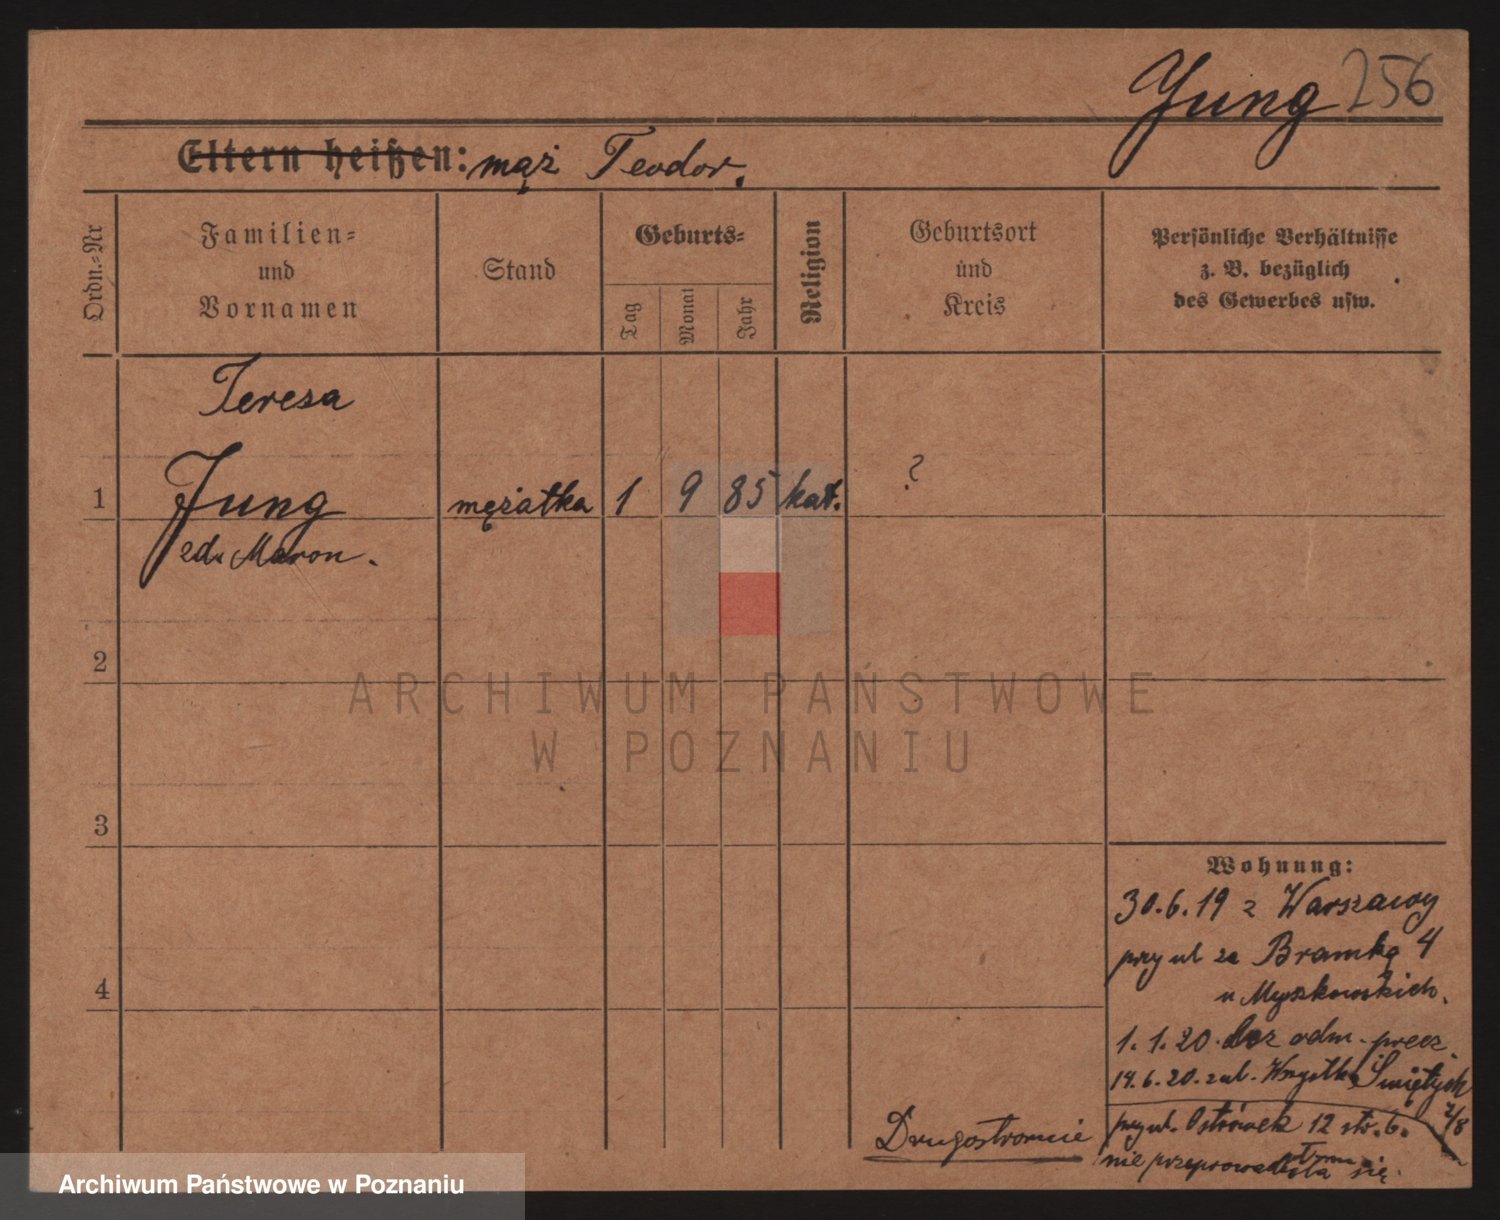 Jung 256
Eltern heißen: mąż Teodor.
Ordn.-Nr
Familien-
und
Vornamen
Stand
Geburts-
Tag
Monat
Jahr
Religion
Geburtsort
und
Kreis
Persönliche Verhältnisse
z. B. bezüglich
des Gewerbes usw.
Teresa
1 Jung mężatka 1 9 85 kat. ?
zd. Maron.
2
ARCHIWUM PAŃSTWOWE
W POZNANIU
3
4
Wohnung:
30.6.19 z Warszawy
przy ul za Bramką 4
u Myszkowskich.
1.1.20. bez odm. precz.
14.6.20. zal. Wszystk. Świętych
przy ul. Ostrówek 12 str. 6. 2/8
nie przeprowadziła się.
Drugostronnie
Archiwum Państwowe w Poznaniu